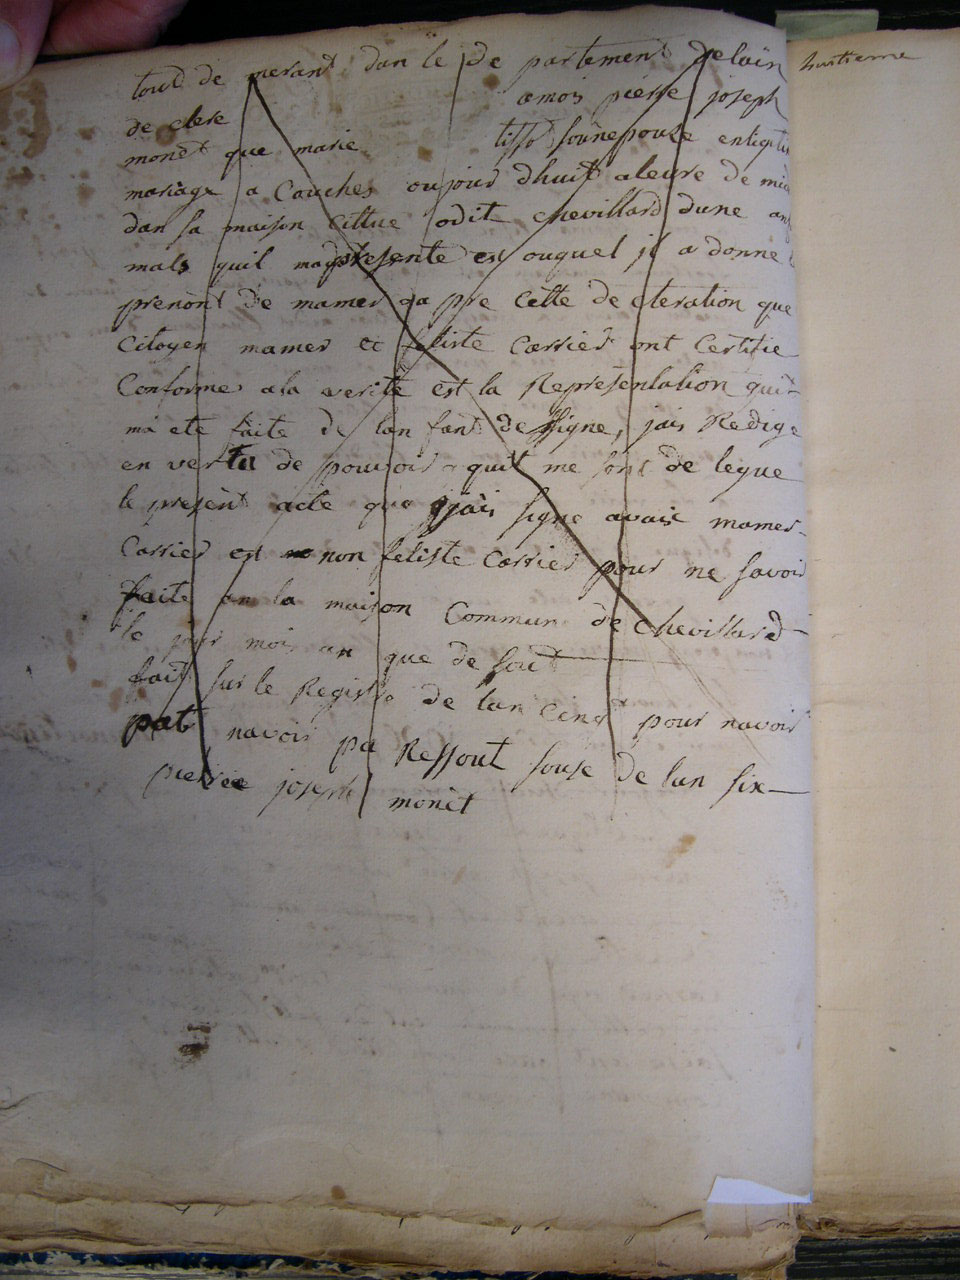 tous de merant dan le de partement delain
de clere amoi pierre joseph
monet que marie tisso soune pouse en
mariage a Couches oujour dhuit aleure de mi
dan sa maison Cittue odit chevillard dune an
mals quil ma presente est ouquel jl a donne
prenont de mamer qa pre Cette de cleration que
Citoyen mamer et feliste Carrier ont Certifie
Conforme a la verite est la Representation quil
ma ete faite de lan fant de signe, jais Redige
en vertu de pouvoir quil me sont de legue
le present acte que jais signe avaic mamer
Carrier est non feliste Carrier pour ne savoir
faite an la maison Commun de chevillard
le jour mois an que de sout
fait sur le Registre de lan Cinq pour navoir
pat navoir pa Ressout souse de lan six
pierre joseph monet
huitieme